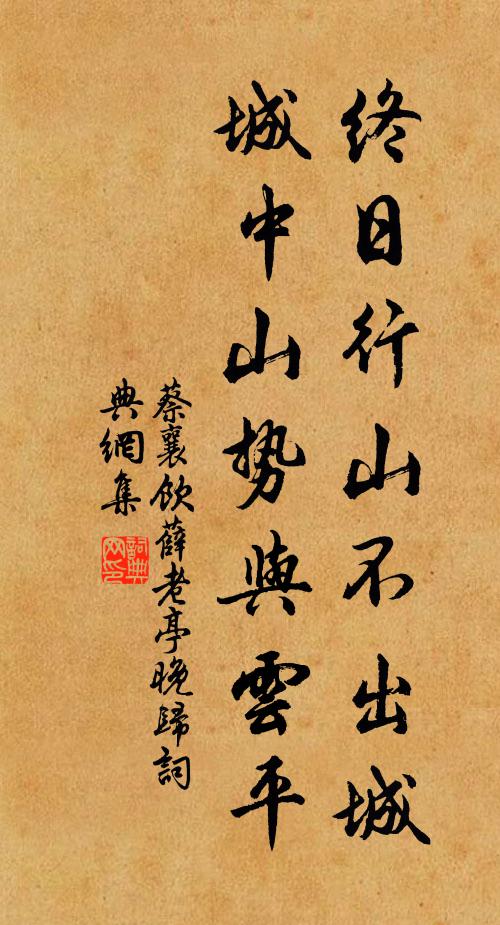 終日行山不出城
城中山势與雲平
蔡襄飲薛老亭晚歸詞
典網集
詞典网印